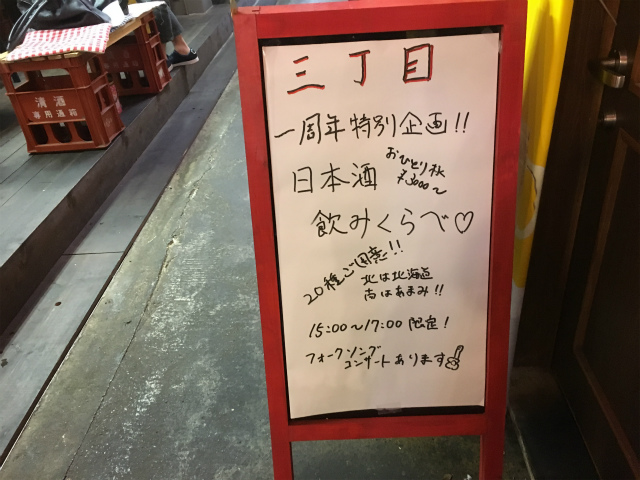 三丁目
一周年特別企画!!
日本酒
おひとり様
¥3000〜
飲みくらべ♡
20種ご用意!!
北は北海道
南はあまみ!!
15:00〜17:00 限定!
フォークソング
コンサートあります
清酒
専用通箱